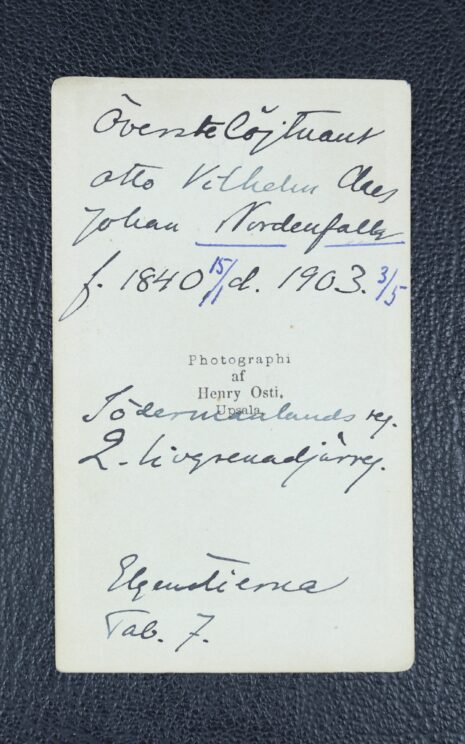 Överstelöjtnant
Otto Vilhelm Claes
Johan Nordenfalk
f. 1840 15/11 d. 1903. 3/5
Photographi
af
Henry Osti,
Upsala.
Södermanlands reg.
2. Livgrenadjärreg.
Elgenstierna
Tab. 7.